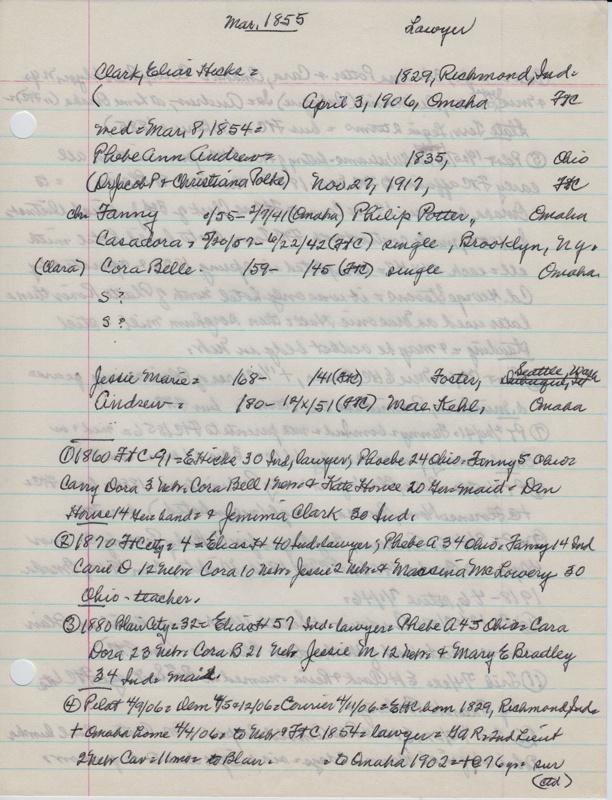 Mar. 1855
Lawyer
Clark, Elias Hicks = 1829, Richmond, Ind=
( April 3, 1906, Omaha FtC
med = Mar, 8, 1854 =
Phebe Ann Andrew = 1835, Ohio
(Dr Jacob P + Christiana Polke) Nov 27, 1917, FtC
chn Fanny 0/55 - 2/7/41 (Omaha) Philip Potter, Omaha
Casadora = 5/20/57 - 6/22/42 (FtC) single, Brooklyn, N.y.
(Clara) Cora Belle. /59 - /45 (FtC) single Omaha.
S ?
S ?
Jessie Marie = /68 - /41 (FtC) Foster, Seattle, Wash
Andrew = /80 - /51 (FtC) Mae Kehl, Omaha
① 1860 FtC-91 = E Hicks 30 Ind, lawyer, Phoebe 24 Ohio. Fanny 5 Ohio =
Carry Dora 3 Nebr. Cora Bell 1 Nebr. & Kate House 20 Ger = maid = Den
House 14 Ger hand = & Jemima Clark 30 Ind.
② 1870 FtCcty = 4 = Elias H 40 Ind = lawyer; Phebe A 34 Ohio. Fanny 14 Ind
Carie D 12 Nebr Cora 10 Nebr Jessie 2 Nebr & McLowery 30
Ohio - teacher.
③ 1880 Blair City = 32 = Elias H 57 Ind = lawyer = Phebe A 45 Ohio = Cara
Dora 23 Nebr Cora B 21 Nebr Jessie M 12 Nebr & Mary E Bradley
34 Ind = maid.
④ Pilot 4/9/06 = Dem 4/5 = 12/06 = Courier 4/11/06 = EHC born 1829, Richmond, Ind =
+ Omaha home 4/4/06 = to Nebr & FtC 1854 = lawyer = GAR = 2nd Lieut
2 Nebr Cav = 11 mos = to Blair. = to Omaha 1902 = 76 yrs = sur
(ctd)